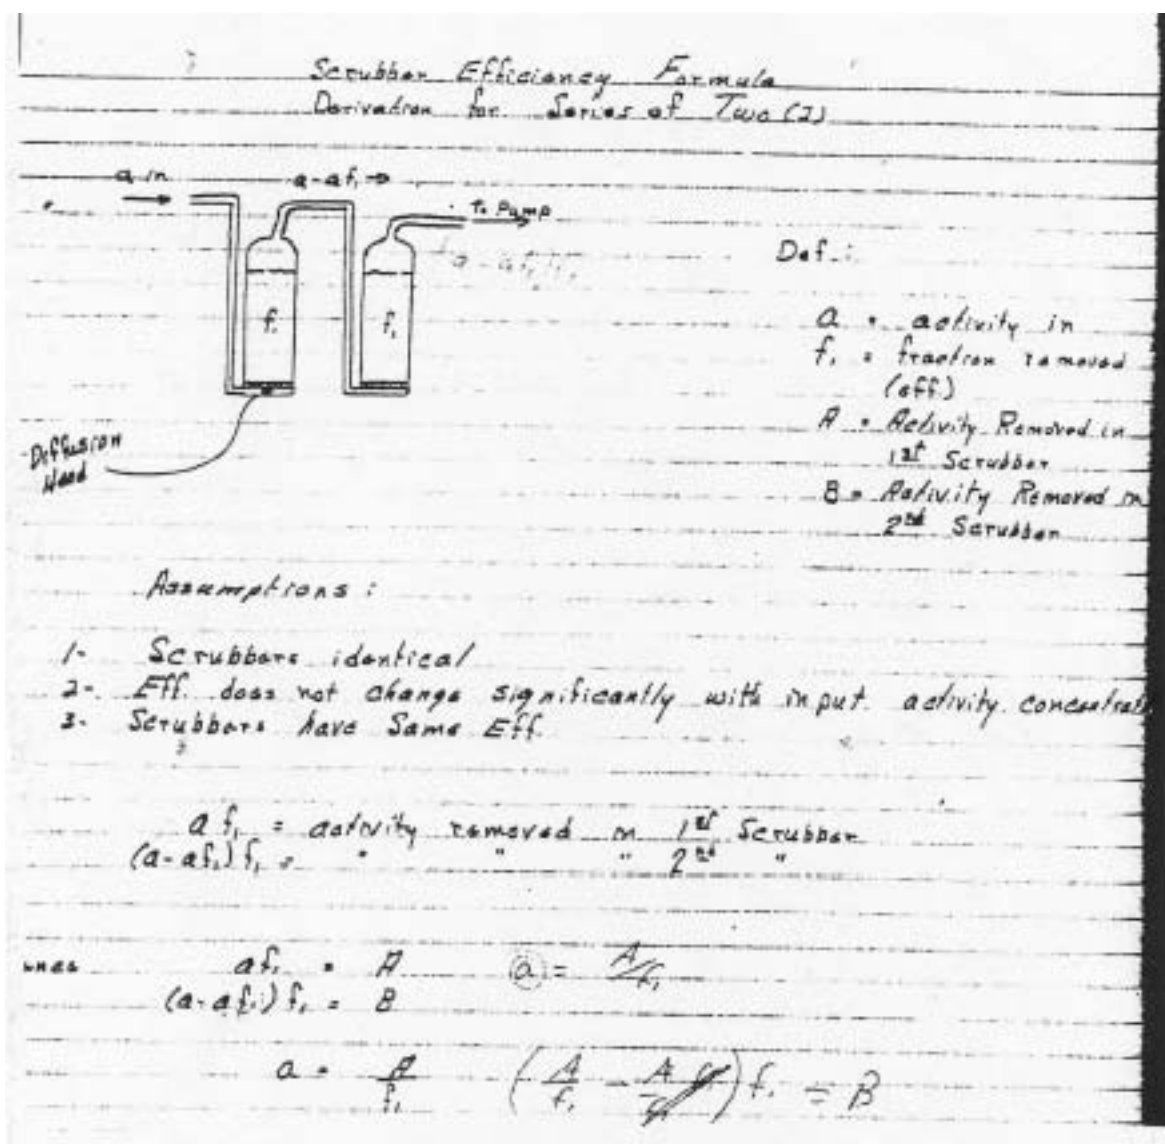 Scrubber Efficiency Formula
Derivation for Series of Two (2)
a in
a-af₁ →
To Pump
f₁
f₁
Diffusion
Head
Def.:
a = activity in
f₁ = fraction removed
(eff.)
A = Activity Removed in
1st Scrubber
B = Activity Removed in
2nd Scrubber
Assumptions:
1- Scrubbers identical
2- Eff. does not change significantly with input activity
3- Scrubbers have Same Eff.
af₁ = activity removed in 1st Scrubber
(a-af₁)f₁ = " " " 2nd "
af₁ = A (a) = A/f₁
(a-af₁)f₁ = B
a = A/f₁ (A/f₁ - A f₁/f₁) f₁ = B